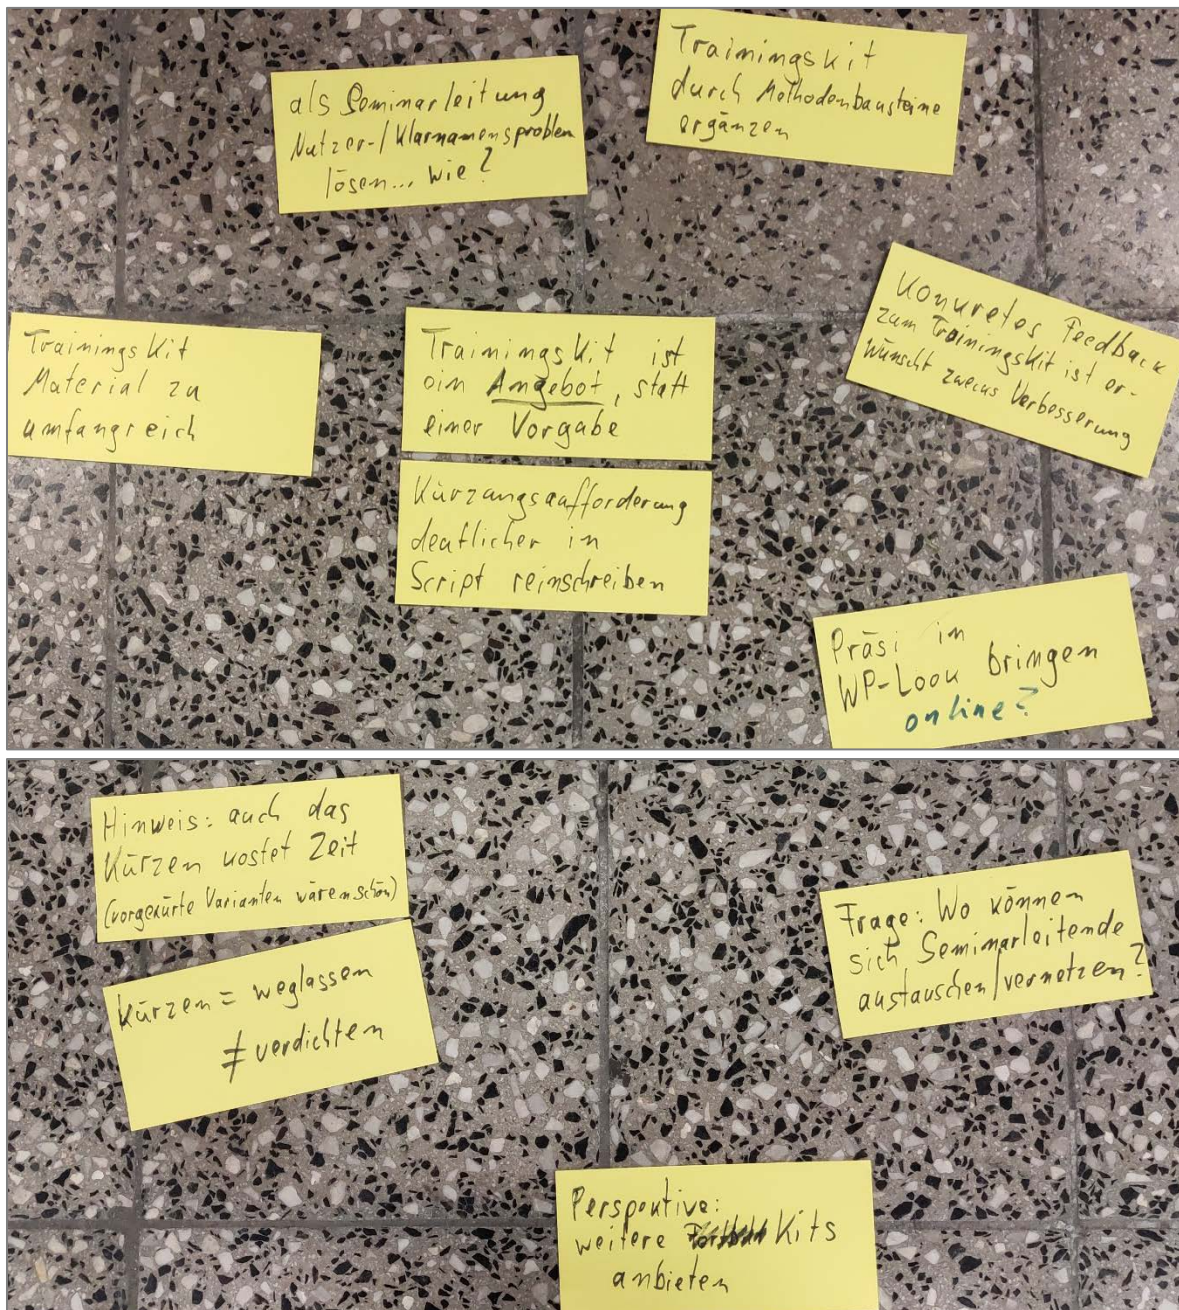 als Seminarleitung
Nutzer-/Klarnamensproblem
lösen... wie?
Trainingskit
durch Methodenbausteine
ergänzen
TrainingsKit
Material zu
umfangreich
TrainingsKit ist
ein Angebot, statt
einer Vorgabe
Konkretes Feedback
zum TrainingsKit ist er-
wünscht zwecks Verbesserung
Kürzungsaufforderung
deutlicher in
Script reinschreiben
Präsi in
WP-Look bringen
online?
Hinweis: auch das
Kürzen kostet Zeit
(vorgekürte Varianten wären schön)
Kürzen = weglassen
≠ verdichten
Frage: Wo können
sich Seminarleitende
austauschen/vernetzen?
Perspektive:
weitere Kits
anbieten